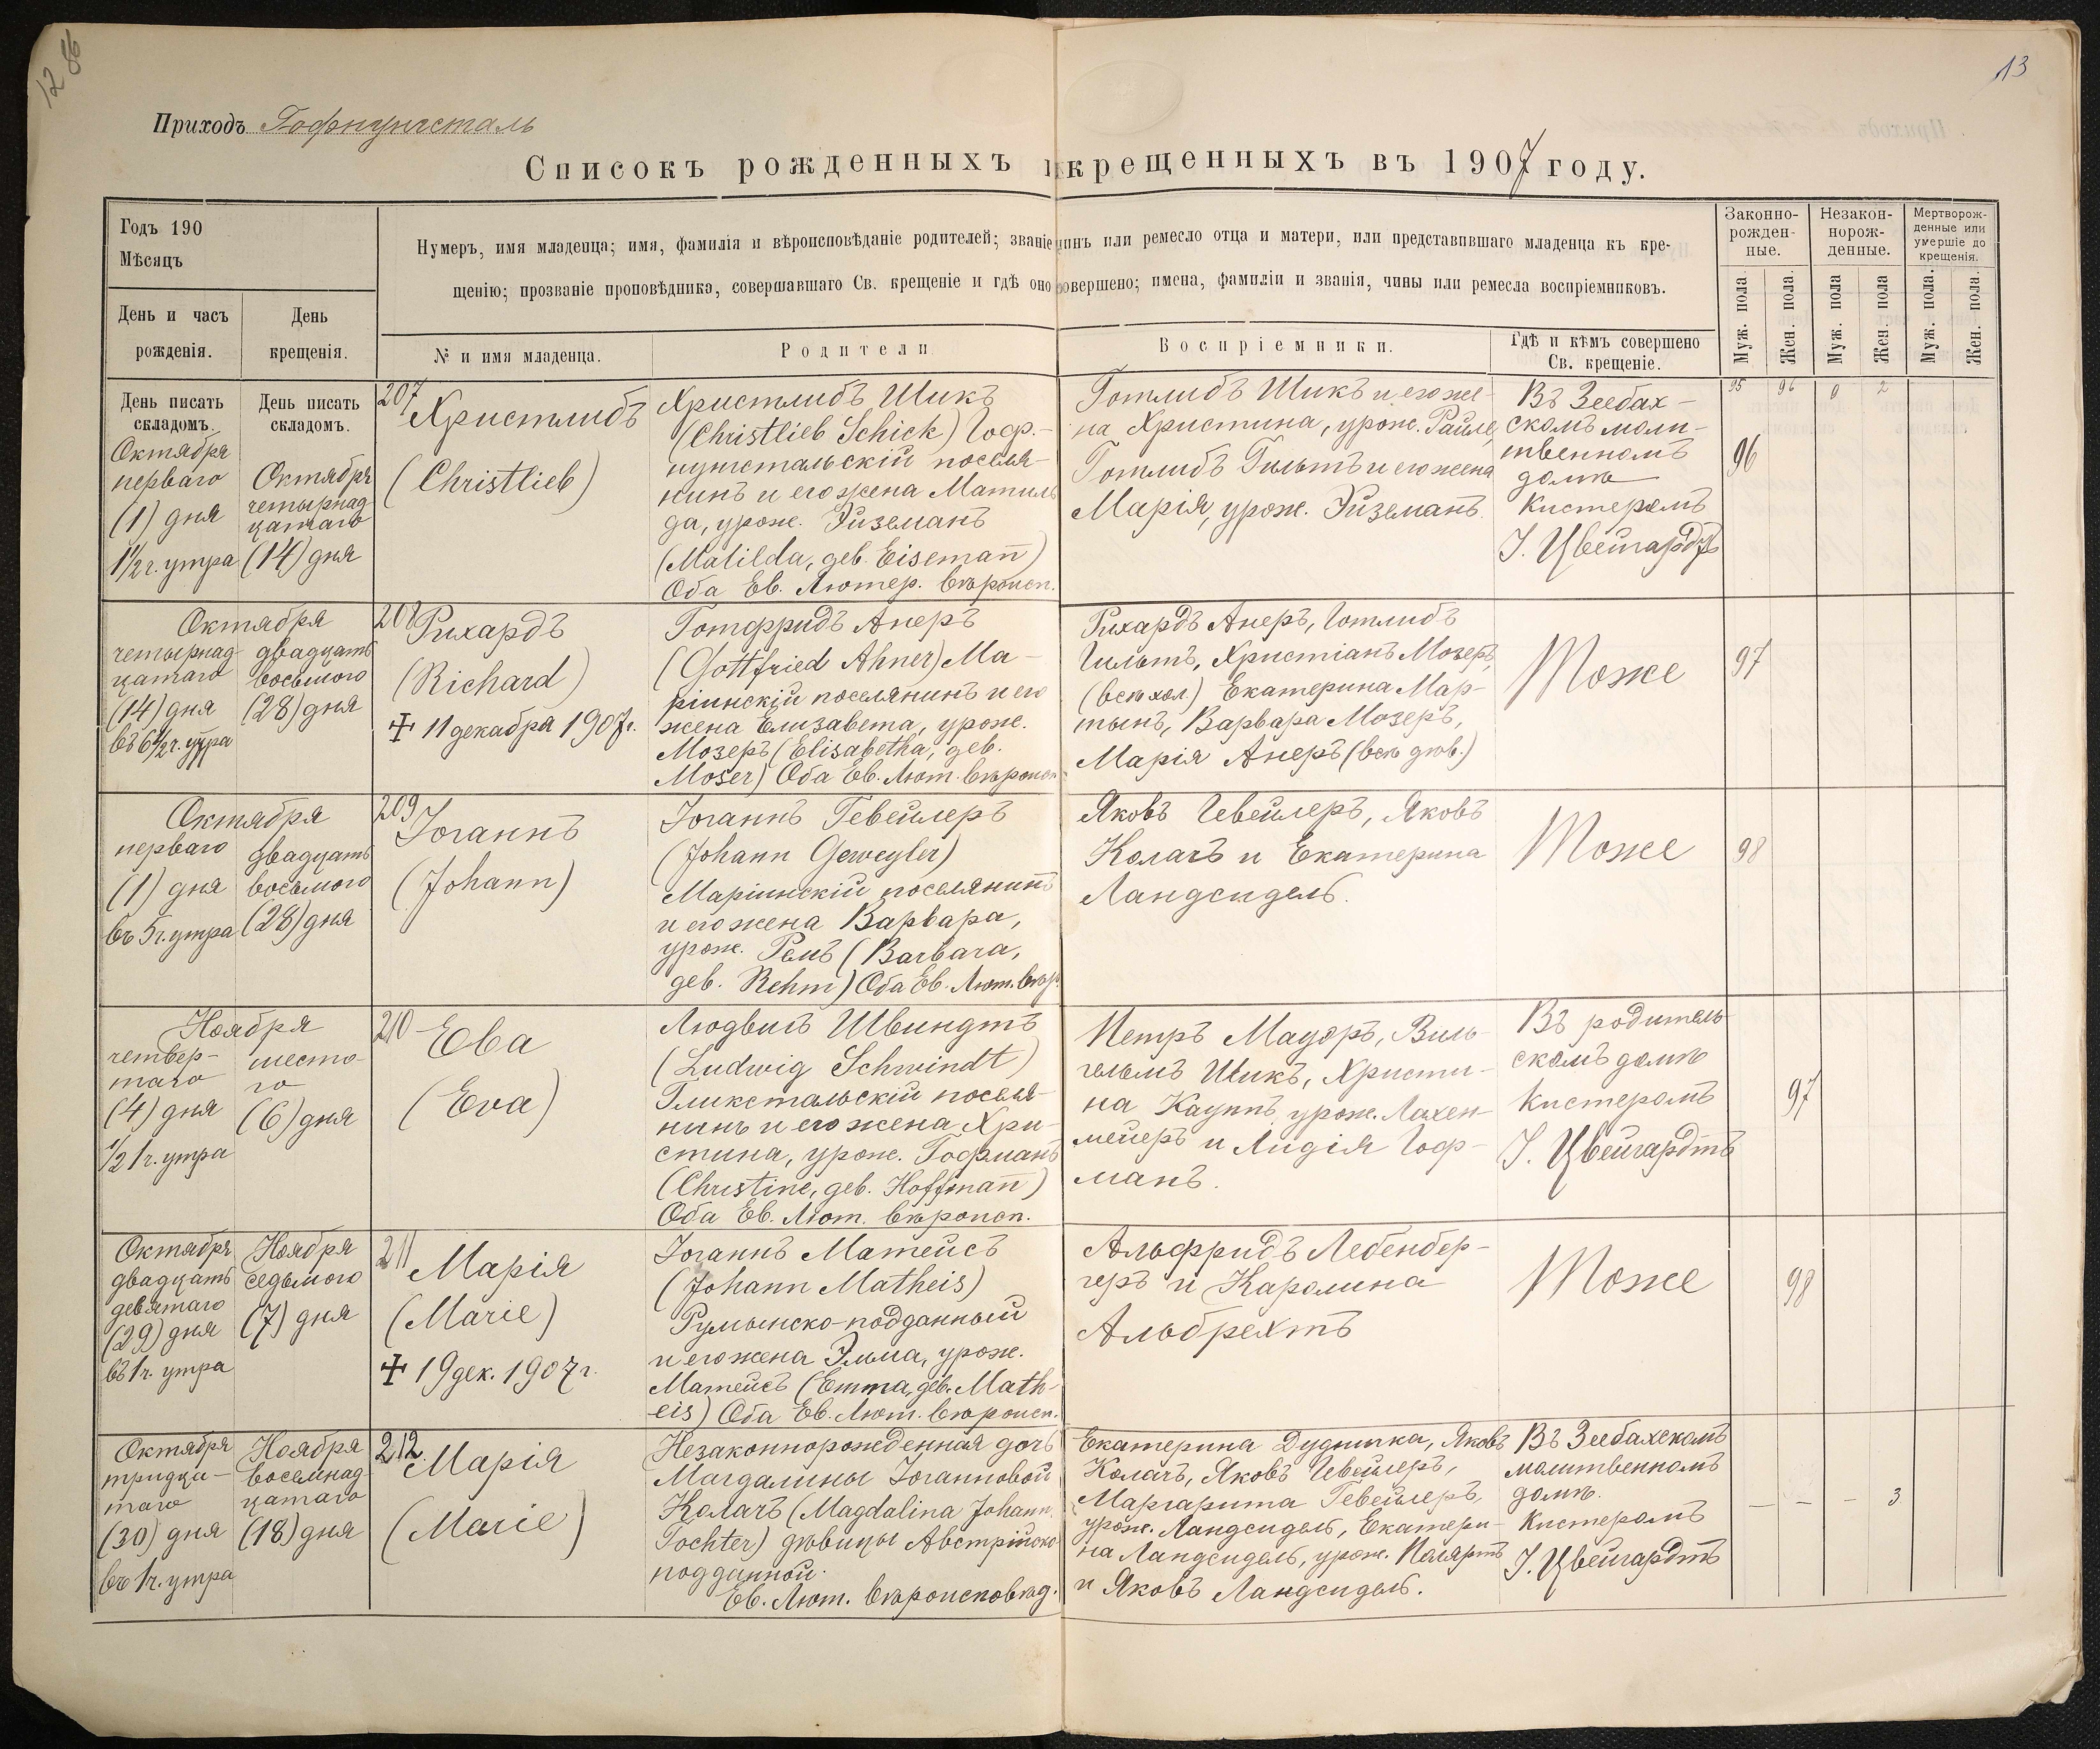 12 86
13
Приходъ Гофнунгсталь
Списокъ рожденныхъ и крещенныхъ въ 1907 году.
Годъ 190
Мѣсяцъ
День и часъ
рожденія.
День
крещенія.
Нумеръ, имя младенца; имя, фамилія и вѣроисповѣданіе родителей; званіе чинъ или ремесло отца и матери, или представившаго младенца къ кре-
щенію; прозваніе проповѣдника, совершавшаго Св. крещеніе и гдѣ оно совершено; имена, фамиліи и званія, чины или ремесла воспріемниковъ.
№ и имя младенца.
Родители
Воспріемники.
Гдѣ и кѣмъ совершено
Св. крещеніе.
Законно-
рожден-
ные.
Незакон-
норож-
денные.
Мертворож-
денные или
умершіе до
крещенія.
Муж. пола
Жен. пола.
Муж. пола
Жен. пола
Муж. пола.
Жен. пола.
День писать
складомъ.
Октября
перваго
(1) дня
1 1/2 ч. утра
День писать
складомъ.
Октября
четырнад-
цатаго
(14) дня
207
Христлибъ
(Christlieb)
Христлибъ Шикъ
(Christlieb Schick) Гоф-
нунгстальскій поселя-
нинъ и его жена Матиль
да, урож. Эйземанъ
(Matilda, geb. Eisemañ)
Оба Ев. Лютер. вѣроисп.
Готлибъ Шикъ и его же-
на Христина, урож. Райле,
Готлибъ Гильтъ и его жена
Марія, урож. Эйземанъ.
Въ Зеебах-
скомъ моли-
твенномъ
домѣ
Кистеромъ
І. Цвейгардтъ
95
96
0
2
96
Октября
четырнад-
цатаго
(14) дня
въ 6 1/2 ч. утра
двадцать
восьмого
(28) дня
208
Рихардъ
(Richard)
✝ 11 декабря 1907 г.
Готфридъ Анеръ
(Gottfried Ahner) Ма-
ріинскій поселянинъ и его
жена Елизавета, урож.
Мозеръ (Elisabetha, geb.
Moser) Оба Ев. Лют. вѣроисп
Рихардъ Анеръ, Готлибъ
Гильтъ, Христіанъ Мозеръ,
(всѣ хол.) Екатерина Мар-
тынъ, Варвара Мозеръ,
Марія Анеръ (всѣ дѣв.)
Тоже
97
Октября
перваго
(1) дня
въ 5 ч. утра
двадцать
восьмого
(28) дня
209
Іоганнъ
(Johann)
Іоганнъ Гевейлеръ
(Johann Geweyler)
Маріинскій поселянинъ
и его жена Варвара,
урож. Ремъ (Barbara,
geb. Rehm) Оба Ев. Лют. вѣр.
Яковъ Гевейлеръ, Яковъ
Колачъ и Екатерина
Ландсидель.
Тоже
98
Ноября
четвер-
таго
(4) дня
1/2 1 ч. утра
шесто-
го
(6) дня
210
Ева
(Eva)
Людвигъ Швиндтъ
(Ludwig Schwindt)
Гликстальскій поселя-
нинъ и его жена Хри-
стина, урож. Гофманъ
(Christine, geb. Hoffmañ)
Оба Ев. Лют. вѣроисп.
Петръ Мауеръ, Виль-
гельмъ Шикъ, Христи-
на Кауппъ урож. Лахен-
мейеръ и Лидія Гоф-
манъ.
Въ родитель-
скомъ домѣ
Кистеромъ
І. Цвейгардтъ
97
Октября
двадцать
девятаго
(29) дня
въ 1 ч. утра
Ноября
седьмого
(7) дня
211
Марія
(Marie)
✝ 19 дек. 1907 г.
Іоганнъ Матейсъ
(Johann Matheis)
Румынско-подданный
и его жена Эмма, урож.
Матейсъ (Emma, geb. Math-
eis) Оба Ев. Лют. вѣроисп.
Альфридъ Лебенбер-
геръ и Каролина
Альбрехтъ
Тоже
98
Октября
тридца-
таго
(30) дня
въ 1 ч. утра
Ноября
восемнад-
цатаго
(18) дня
212.
Марія
(Marie)
Незаконнорожденная дочь
Магдалины Іоганновой
Колачъ (Magdalina Johann.
Tochter) дѣвицы Австрійско-
подданной.
Ев. Лют. вѣроисповѣд.
Екатерина Дудника, Яковъ
Колачъ, Яковъ Гевейлеръ,
Маргарита Гевейлеръ,
урож. Ландсидель, Екатери-
на Ландсидель, урож.
и Яковъ Ландсидель.
Въ Зеебахскомъ
молитвенномъ
домѣ.
Кистеромъ
І. Цвейгардтъ
— — — 3